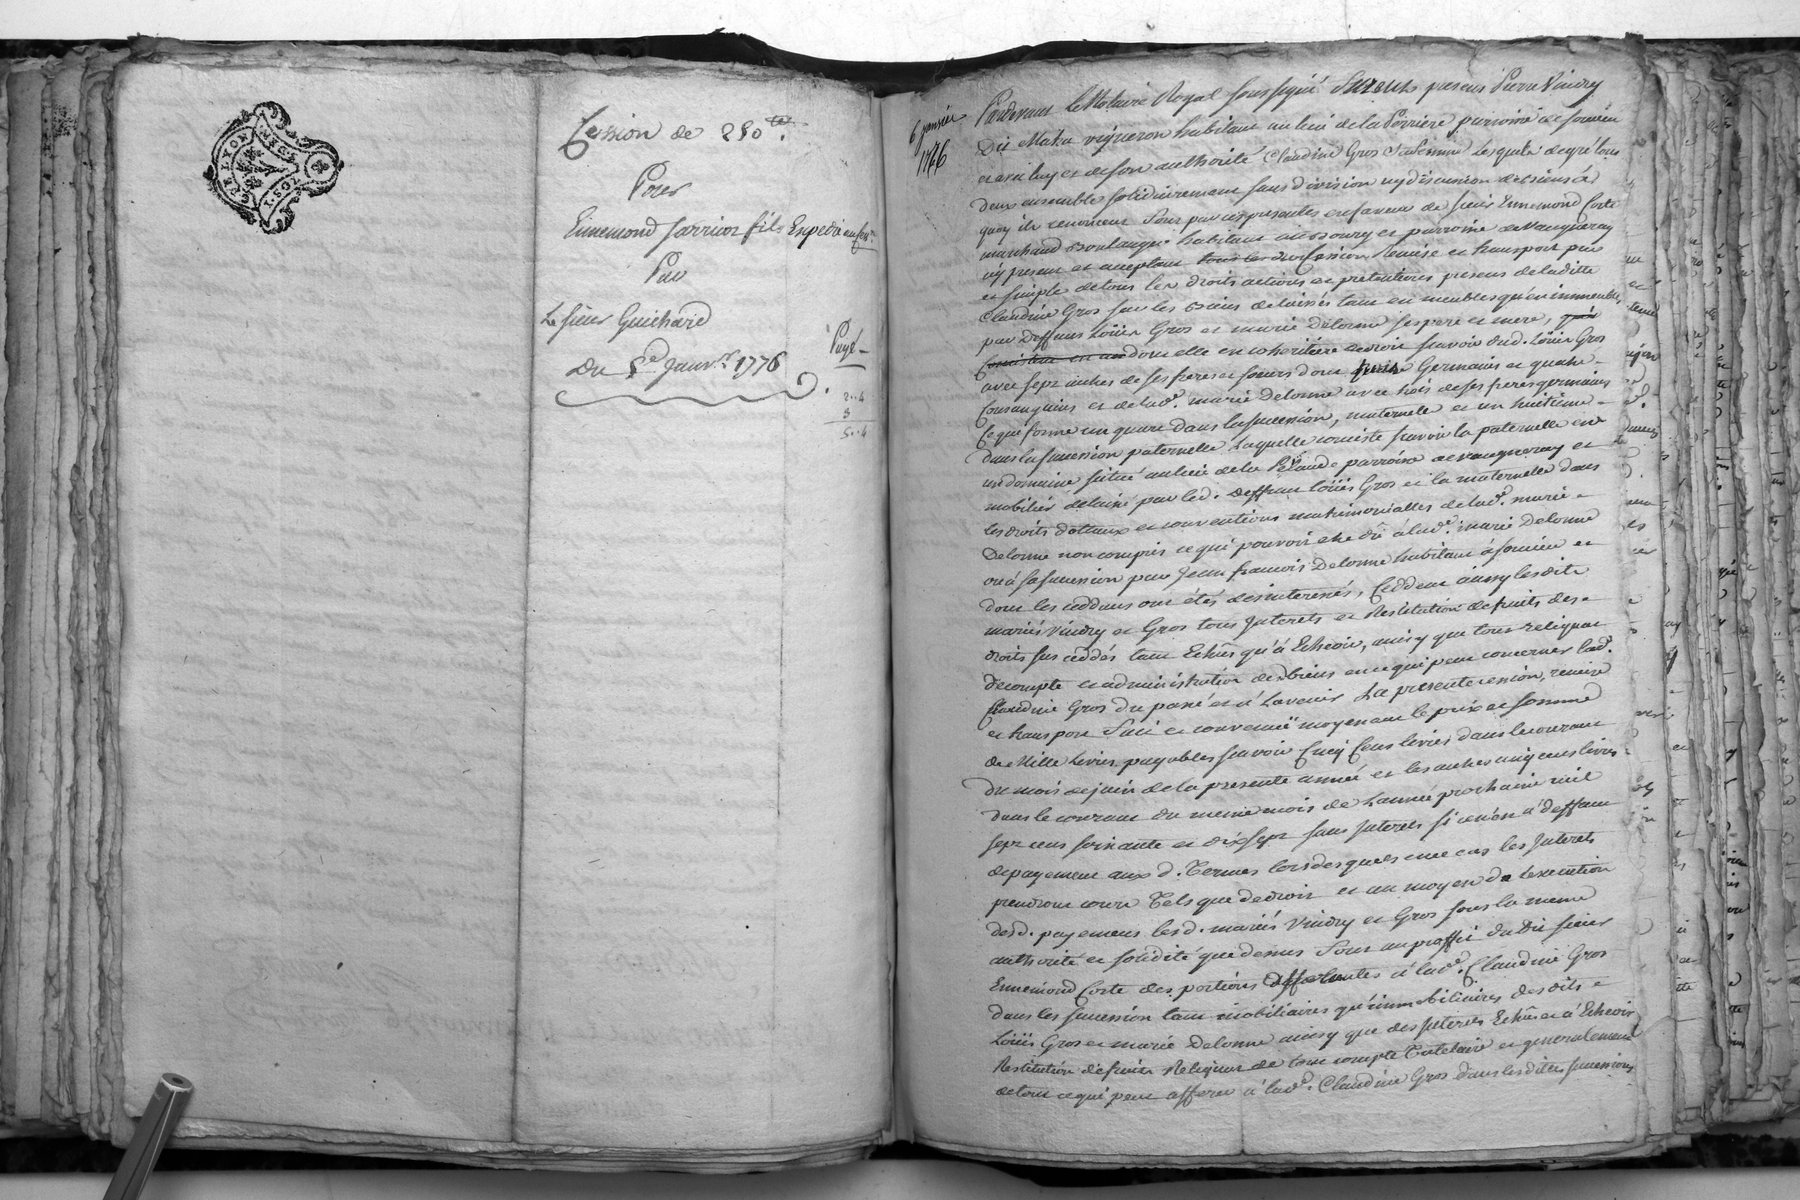 GEN. DE LYON
1. SOL
Cession de 250 ₶.
Pour
Ennemond Jarricot fils Expedié en for.
Par
Le sieur Guichard
Du 5e Janvr. 1776
Payé
2..4
3
5..4
6 janvier
1776
Pardevant le Notaire Royal soussigné Furent presens Pierre Vindry
Dit Mathu vigneron habitant au lieu de la Perriere parroisse de soucieu
et avec luy et de son authorité Claudine Gros sa femme lesquels de gré tous
deux ensemble solidairement sans division ny discussion de biens à
quoy ils renoncent Font par ces presentes en faveur de sieur Ennemond Corte
marchand Boulanger habitant au Bourg et parroisse de Vaugneray
icy present et acceptant Cession Remise et transport pur
et simple de tous les droits actions et pretentions presens de laditte
Claudine Gros sur les Biens delaissés tant en meubles qu'en immeubles
par deffunts Loüis Gros et marie Delorme ses pere et mere,
dont elle en coheritiere de droit scavoir dud. Loüis Gros
avec sept autres de ses freres et soeurs dont Germains et quatre
Consanguins et de lad. marie Delorme avec trois de ses freres germains
Ce qui forme un quart dans la succession maternelle et un huitieme
dans la succession paternelle Laquelle consiste scavoir la paternelle en
un domaine situé au lieu de la parroisse de vaugneray et
mobilier delaissé par led. deffunt Loüis Gros et la maternelle dans
les droits dottaux et conventions matrimonialles de lad. marie
Delorme non compris ce qui pouvoit etre dû à lad. marie Delorme
ou à sa succession par Jean françois Delorme habitant à soucieu et
dont les ceddans ont étés desinteressés, Ceddent aussy lesdits
mariés Vindry et Gros tous Interets et Restitution de fruits des
droits sus ceddés tant Echûs qu'à Echeoir, aussy que tous reliquat
de compte et administration des biens en ce qui peut concerner lad.
Claudine Gros du passé et à Lavenir La presente cession, remise
et transport Fait et convenüe moyenant le prix et somme
de Mille Livres payables scavoir Cinq Cens livres dans le courant
du mois de juin de la presente année et les autres cinq cens livres
dans le courant du meme mois de L'année prochaine mil
sept cens soixante et dix sept sans Interets si ce n'est à deffaut
de payement aux d. Termes lors desquels en ce cas les Interets
prendront cours Tels que de droit et au moyen de l'execution
desd. payemens lesd. mariés Vindry et Gros sous la meme
authorité et solidité que dessus Font au proffit du dit sieur
Ennemond Corte des portions afferentes à lad. Claudine Gros
dans les succession tant mobiliaires qu'immobiliaires desdits
Loüis Gros et marie Delorme aussy que des Interets Echûs et à Echeoir
Restitution de fruits Reliquat de tout compte Tutelaire et generalement
de tout ce qui peut afferer à lad. Claudine Gros dans lesdittes successions